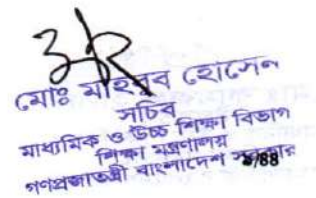 মোঃ মাহবুব হোসেন
সচিব
মাধ্যমিক ও উচ্চ শিক্ষা বিভাগ
শিক্ষা মন্ত্রণালয়
গণপ্রজাতন্ত্রী বাংলাদেশ সরকার
/88